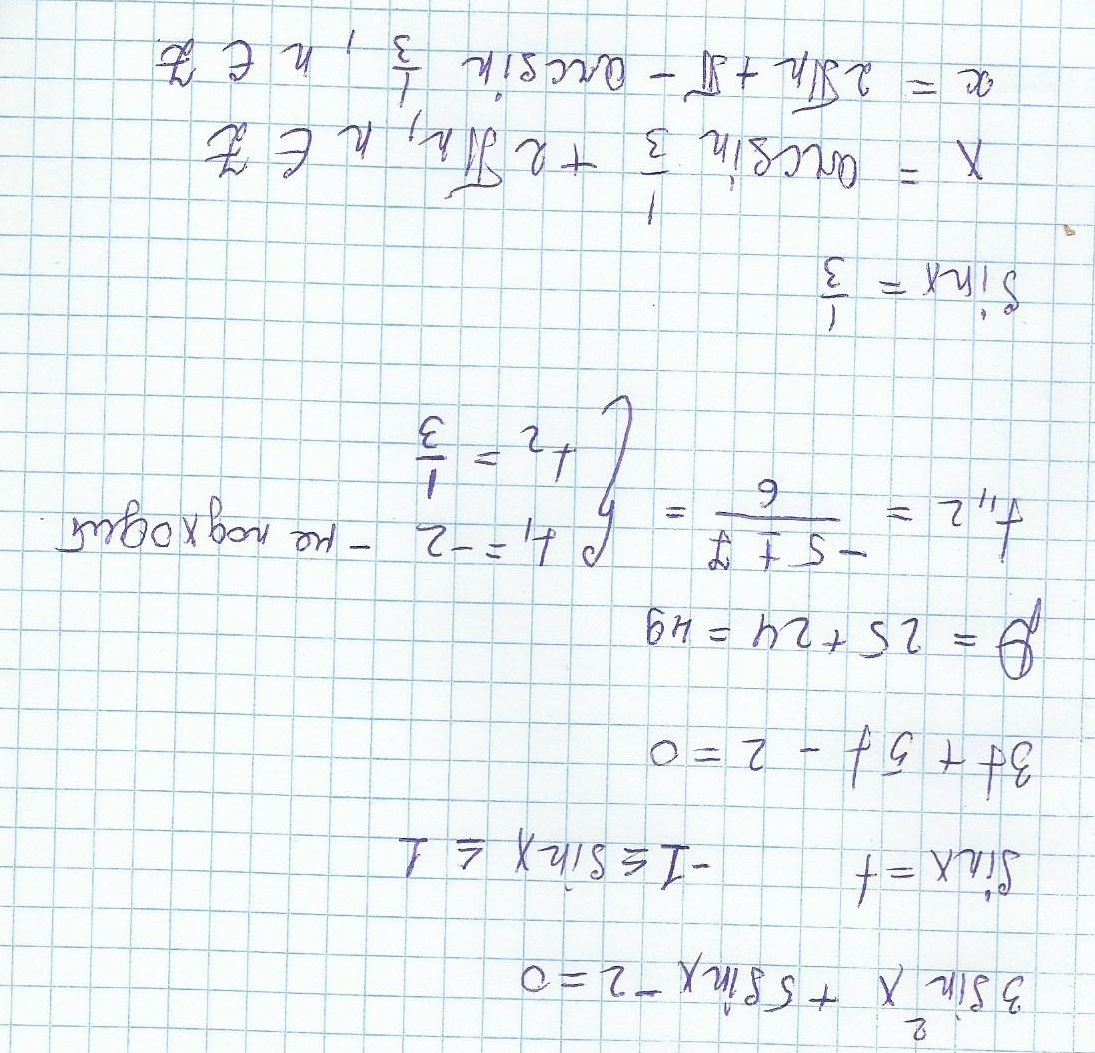 3 sin² x + 5 sin x - 2 = 0
sin x = t   -1 ≤ sin x ≤ 1
3t + 5t - 2 = 0
D = 25 + 24 = 49
t₁,₂ = (-5 ± 7)/6 = { t₁ = -2 - не подходит
t₂ = 1/3
sin x = 1/3
x = arcsin 1/3 + 2πn, n ∈ Z
x = 2πn + π - arcsin 1/3, n ∈ Z